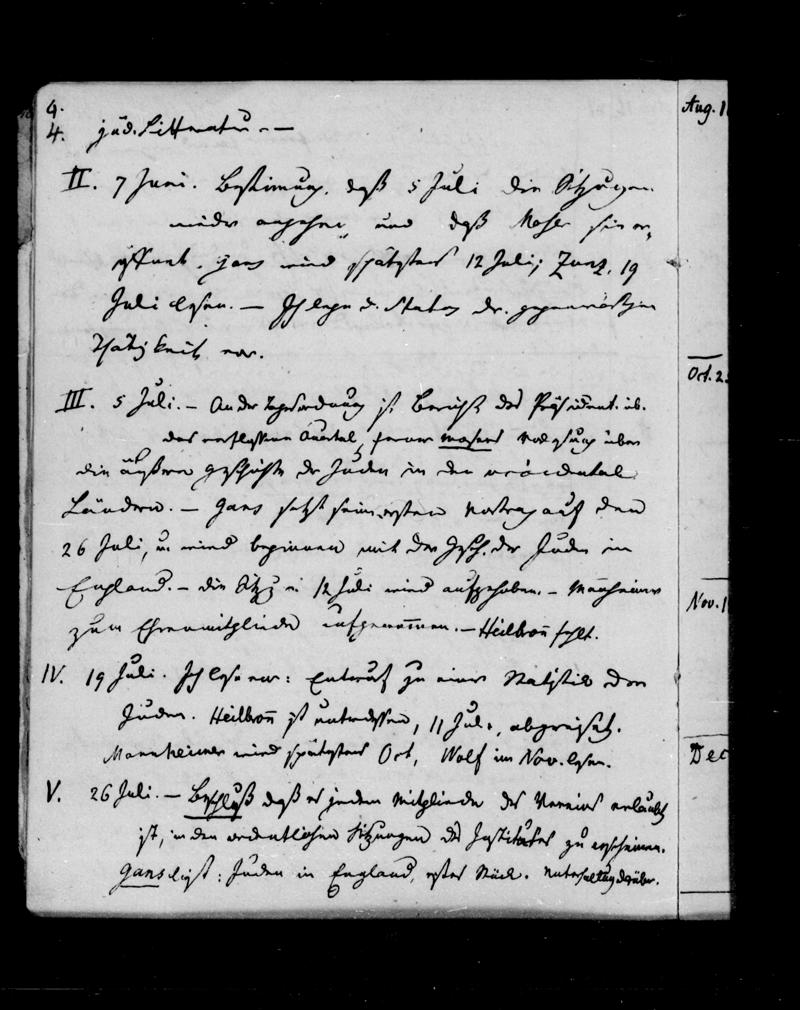 4.
4. jüd. Litteratur. —
II. 7 Juni. Bestimmung, daß 5 Juli die Sitzungen
wieder angehen, und daß Moser sie er-
öffnet. Gans wird spätestens 12 Juli; Zunz. 19
Juli lesen. — Ich lege d. Status der gegenwärtigen
Thätigkeit vor.
III. 5 Juli. — An der Tagesordnung ist Bericht des Präsident. üb.
das verflossene Quartal, ferner Mosers Vorlesung über
die äußere Geschichte der Juden in den occidental.
Ländern. — Gans setzt seinen ersten Vortrag auf den
26 Juli, u. wird beginnen mit der Gesch. der Juden in
England. — die Sitzg 12 Juli wird aufgehoben. — Mannheimer
zum Ehrenmitgliede aufgenommen. — Heilbron̄ fehlt.
IV. 19 Juli. Ich lese vor: Entwurf zu einer Statistik der
Juden. Heilbron̄ ist unterdessen, 11 Juli, abgereiset.
Mannheimer wird spätestens Oct, Wolf im Nov. lesen.
V. 26 Juli. — Beschluß daß es jedem Mitgliede des Vereins erlaubt
ist, in den ordentlichen Sitzungen des Institutes zu erscheinen.
Gans liest: Juden in England, erstes Stück. Unterhaltung darüber.
Aug. 1
Oct. 2
Nov. 1
Dec